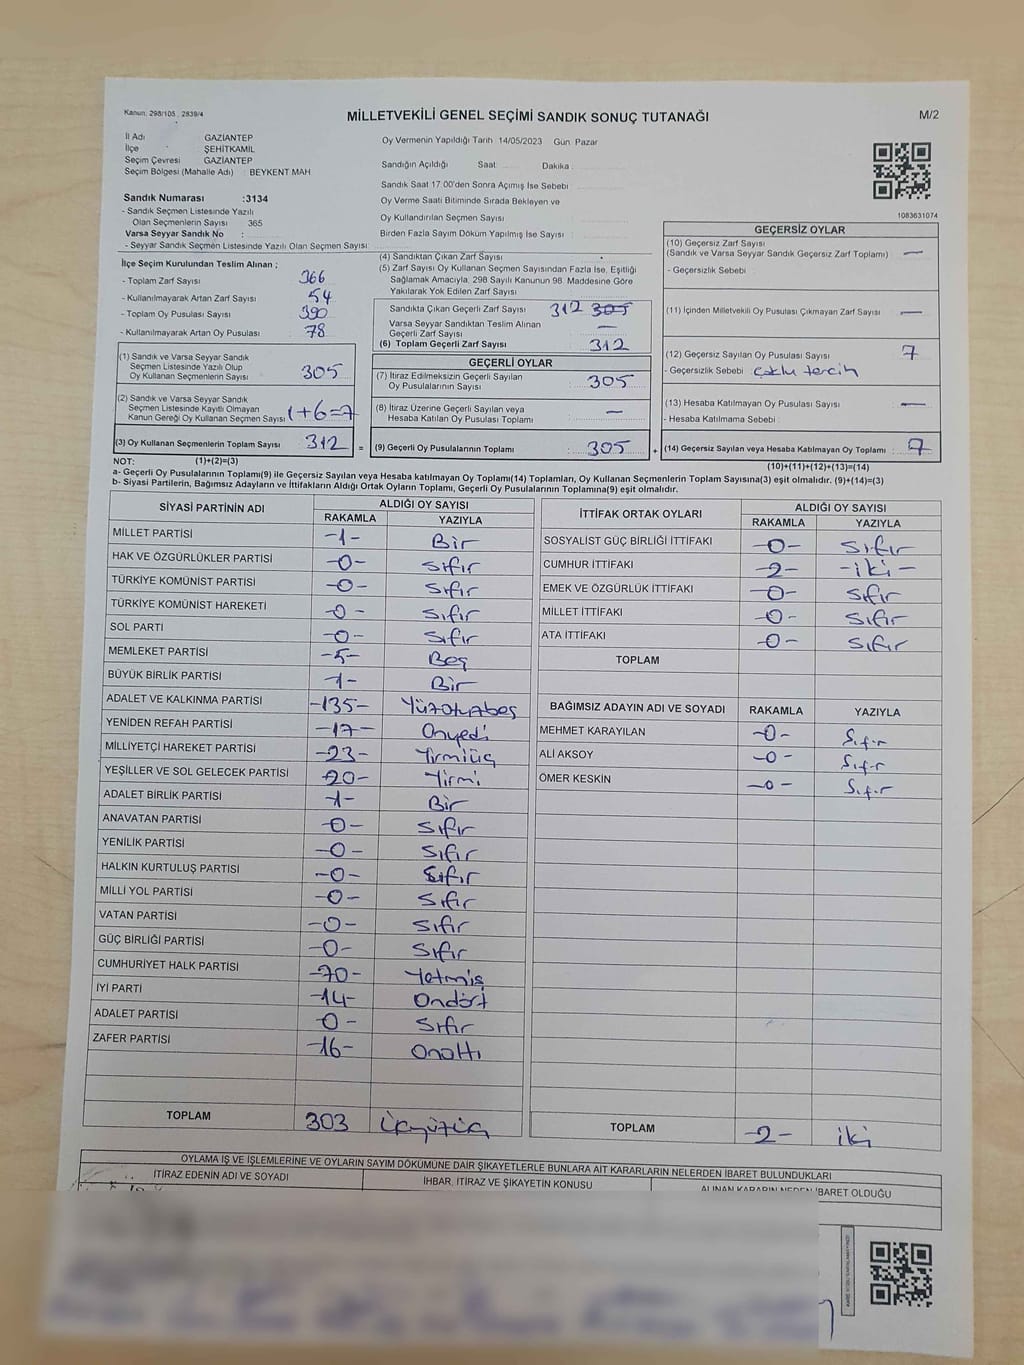 Kanun, 298/105 , 2839/4
MİLLETVEKİLİ GENEL SEÇİMİ SANDIK SONUÇ TUTANAĞI
M/2
İl Adı GAZİANTEP
İlçe ŞEHİTKAMİL
Seçim Çevresi GAZİANTEP
Seçim Bölgesi (Mahalle Adı) : BEYKENT MAH
Oy Vermenin Yapıldığı Tarih 14/05/2023 Gün Pazar
Sandığın Açıldığı Saat Dakika
Sandık Saat 17.00'den Sonra Açımış İse Sebebi
Oy Verme Saati Bitiminde Sırada Bekleyen ve
Oy Kullandırılan Seçmen Sayısı
Birden Fazla Sayım Döküm Yapılmış İse Sayısı :
1083631074
Sandık Numarası :3134
- Sandık Seçmen Listesinde Yazılı
Olan Seçmenlerin Sayısı 365
Varsa Seyyar Sandık No :
- Seyyar Sandık Seçmen Listesinde Yazılı Olan Seçmen Sayısı:
İlçe Seçim Kurulundan Teslim Alınan ;
- Toplam Zarf Sayısı : 366
- Kullanılmayarak Artan Zarf Sayısı : 54
- Toplam Oy Pusulası Sayısı : 390
- Kullanılmayarak Artan Oy Pusulası : 78
(1) Sandık ve Varsa Seyyar Sandık
Seçmen Listesinde Yazılı Olup
Oy Kullanan Seçmenlerin Sayısı 305
(2) Sandık ve Varsa Seyyar Sandık
Seçmen Listesinde Kayıtlı Olmayan
Kanun Gereği Oy Kullanan Seçmen Sayısı 1+6=7
(3) Oy Kullanan Seçmenlerin Toplam Sayısı 312 =
(4) Sandıktan Çıkan Zarf Sayısı
(5) Zarf Sayısı Oy Kullanan Seçmen Sayısından Fazla İse, Eşitliği
Sağlamak Amacıyla, 298 Sayılı Kanunun 98. Maddesine Göre
Yakılarak Yok Edilen Zarf Sayısı
Sandıkta Çıkan Geçerli Zarf Sayısı 312 305
Varsa Seyyar Sandıktan Teslim Alınan
Geçerli Zarf Sayısı : —
(6) Toplam Geçerli Zarf Sayısı : 312
GEÇERLİ OYLAR
(7) İtiraz Edilmeksizin Geçerli Sayılan
Oy Pusulalarının Sayısı : 305
(8) İtiraz Üzerine Geçerli Sayılan veya
Hesaba Katılan Oy Pusulası Toplamı : —
(9) Geçerli Oy Pusulalarının Toplamı : 305 +
GEÇERSİZ OYLAR
(10) Geçersiz Zarf Sayısı
(Sandık ve Varsa Seyyar Sandık Geçersiz Zarf Toplamı) —
- Geçersizlik Sebebi
(11) İçinden Milletvekili Oy Pusulası Çıkmayan Zarf Sayısı —
(12) Geçersiz Sayılan Oy Pusulası Sayısı 7
- Geçersizlik Sebebi çoklu tercih
(13) Hesaba Katılmayan Oy Pusulası Sayısı —
- Hesaba Katılmama Sebebi :
(14) Geçersiz Sayılan veya Hesaba Katılmayan Oy Toplamı : 7
NOT: (1)+(2)=(3)
(10)+(11)+(12)+(13)=(14)
a- Geçerli Oy Pusulalarının Toplamı(9) ile Geçersiz Sayılan veya Hesaba katılmayan Oy Toplamı(14) Toplamları, Oy Kullanan Seçmenlerin Toplam Sayısına(3) eşit olmalıdır. (9)+(14)=(3)
b- Siyasi Partilerin, Bağımsız Adayların ve İttifakların Aldığı Ortak Oyların Toplamı, Geçerli Oy Pusulalarının Toplamına(9) eşit olmalıdır.
SİYASİ PARTİNİN ADI
ALDIĞI OY SAYISI
RAKAMLA YAZIYLA
MİLLET PARTİSİ -1- Bir
HAK VE ÖZGÜRLÜKLER PARTİSİ -0- sıfır
TÜRKİYE KOMÜNİST PARTİSİ -0- sıfır
TÜRKİYE KOMÜNİST HAREKETİ -0- sıfır
SOL PARTİ -0- sıfır
MEMLEKET PARTİSİ -5- Beş
BÜYÜK BİRLİK PARTİSİ -1- Bir
ADALET VE KALKINMA PARTİSİ -135- Yüzotuzbeş
YENİDEN REFAH PARTİSİ -17- Onyedi
MİLLİYETÇİ HAREKET PARTİSİ -23- Yirmiüç
YEŞİLLER VE SOL GELECEK PARTİSİ -20- Yirmi
ADALET BİRLİK PARTİSİ -1- Bir
ANAVATAN PARTİSİ -0- sıfır
YENİLİK PARTİSİ -0- sıfır
HALKIN KURTULUŞ PARTİSİ -0- sıfır
MİLLİ YOL PARTİSİ -0- sıfır
VATAN PARTİSİ -0- sıfır
GÜÇ BİRLİĞİ PARTİSİ -0- sıfır
CUMHURİYET HALK PARTİSİ -70- Yetmiş
İYİ PARTİ -14- Ondört
ADALET PARTİSİ -0- sıfır
ZAFER PARTİSİ -16- Onaltı
TOPLAM 303 üçyüzüç
İTTİFAK ORTAK OYLARI
ALDIĞI OY SAYISI
RAKAMLA YAZIYLA
SOSYALİST GÜÇ BİRLİĞİ İTTİFAKI -0- sıfır
CUMHUR İTTİFAKI -2- -iki-
EMEK VE ÖZGÜRLÜK İTTİFAKI -0- sıfır
MİLLET İTTİFAKI -0- sıfır
ATA İTTİFAKI -0- sıfır
TOPLAM
BAĞIMSIZ ADAYIN ADI VE SOYADI RAKAMLA YAZIYLA
MEHMET KARAYILAN -0- Sıfır
ALİ AKSOY -0- Sıfır
ÖMER KESKİN -0- Sıfır
TOPLAM -2- iki
OYLAMA İŞ VE İŞLEMLERİNE VE OYLARIN SAYIM DÖKÜMÜNE DAİR ŞİKAYETLERLE BUNLARA AİT KARARLARIN NELERDEN İBARET BULUNDUKLARI
İTİRAZ EDENİN ADI VE SOYADI
İHBAR, İTİRAZ VE ŞİKAYETİN KONUSU
ALINAN KARARIN NEDEN İBARET OLDUĞU